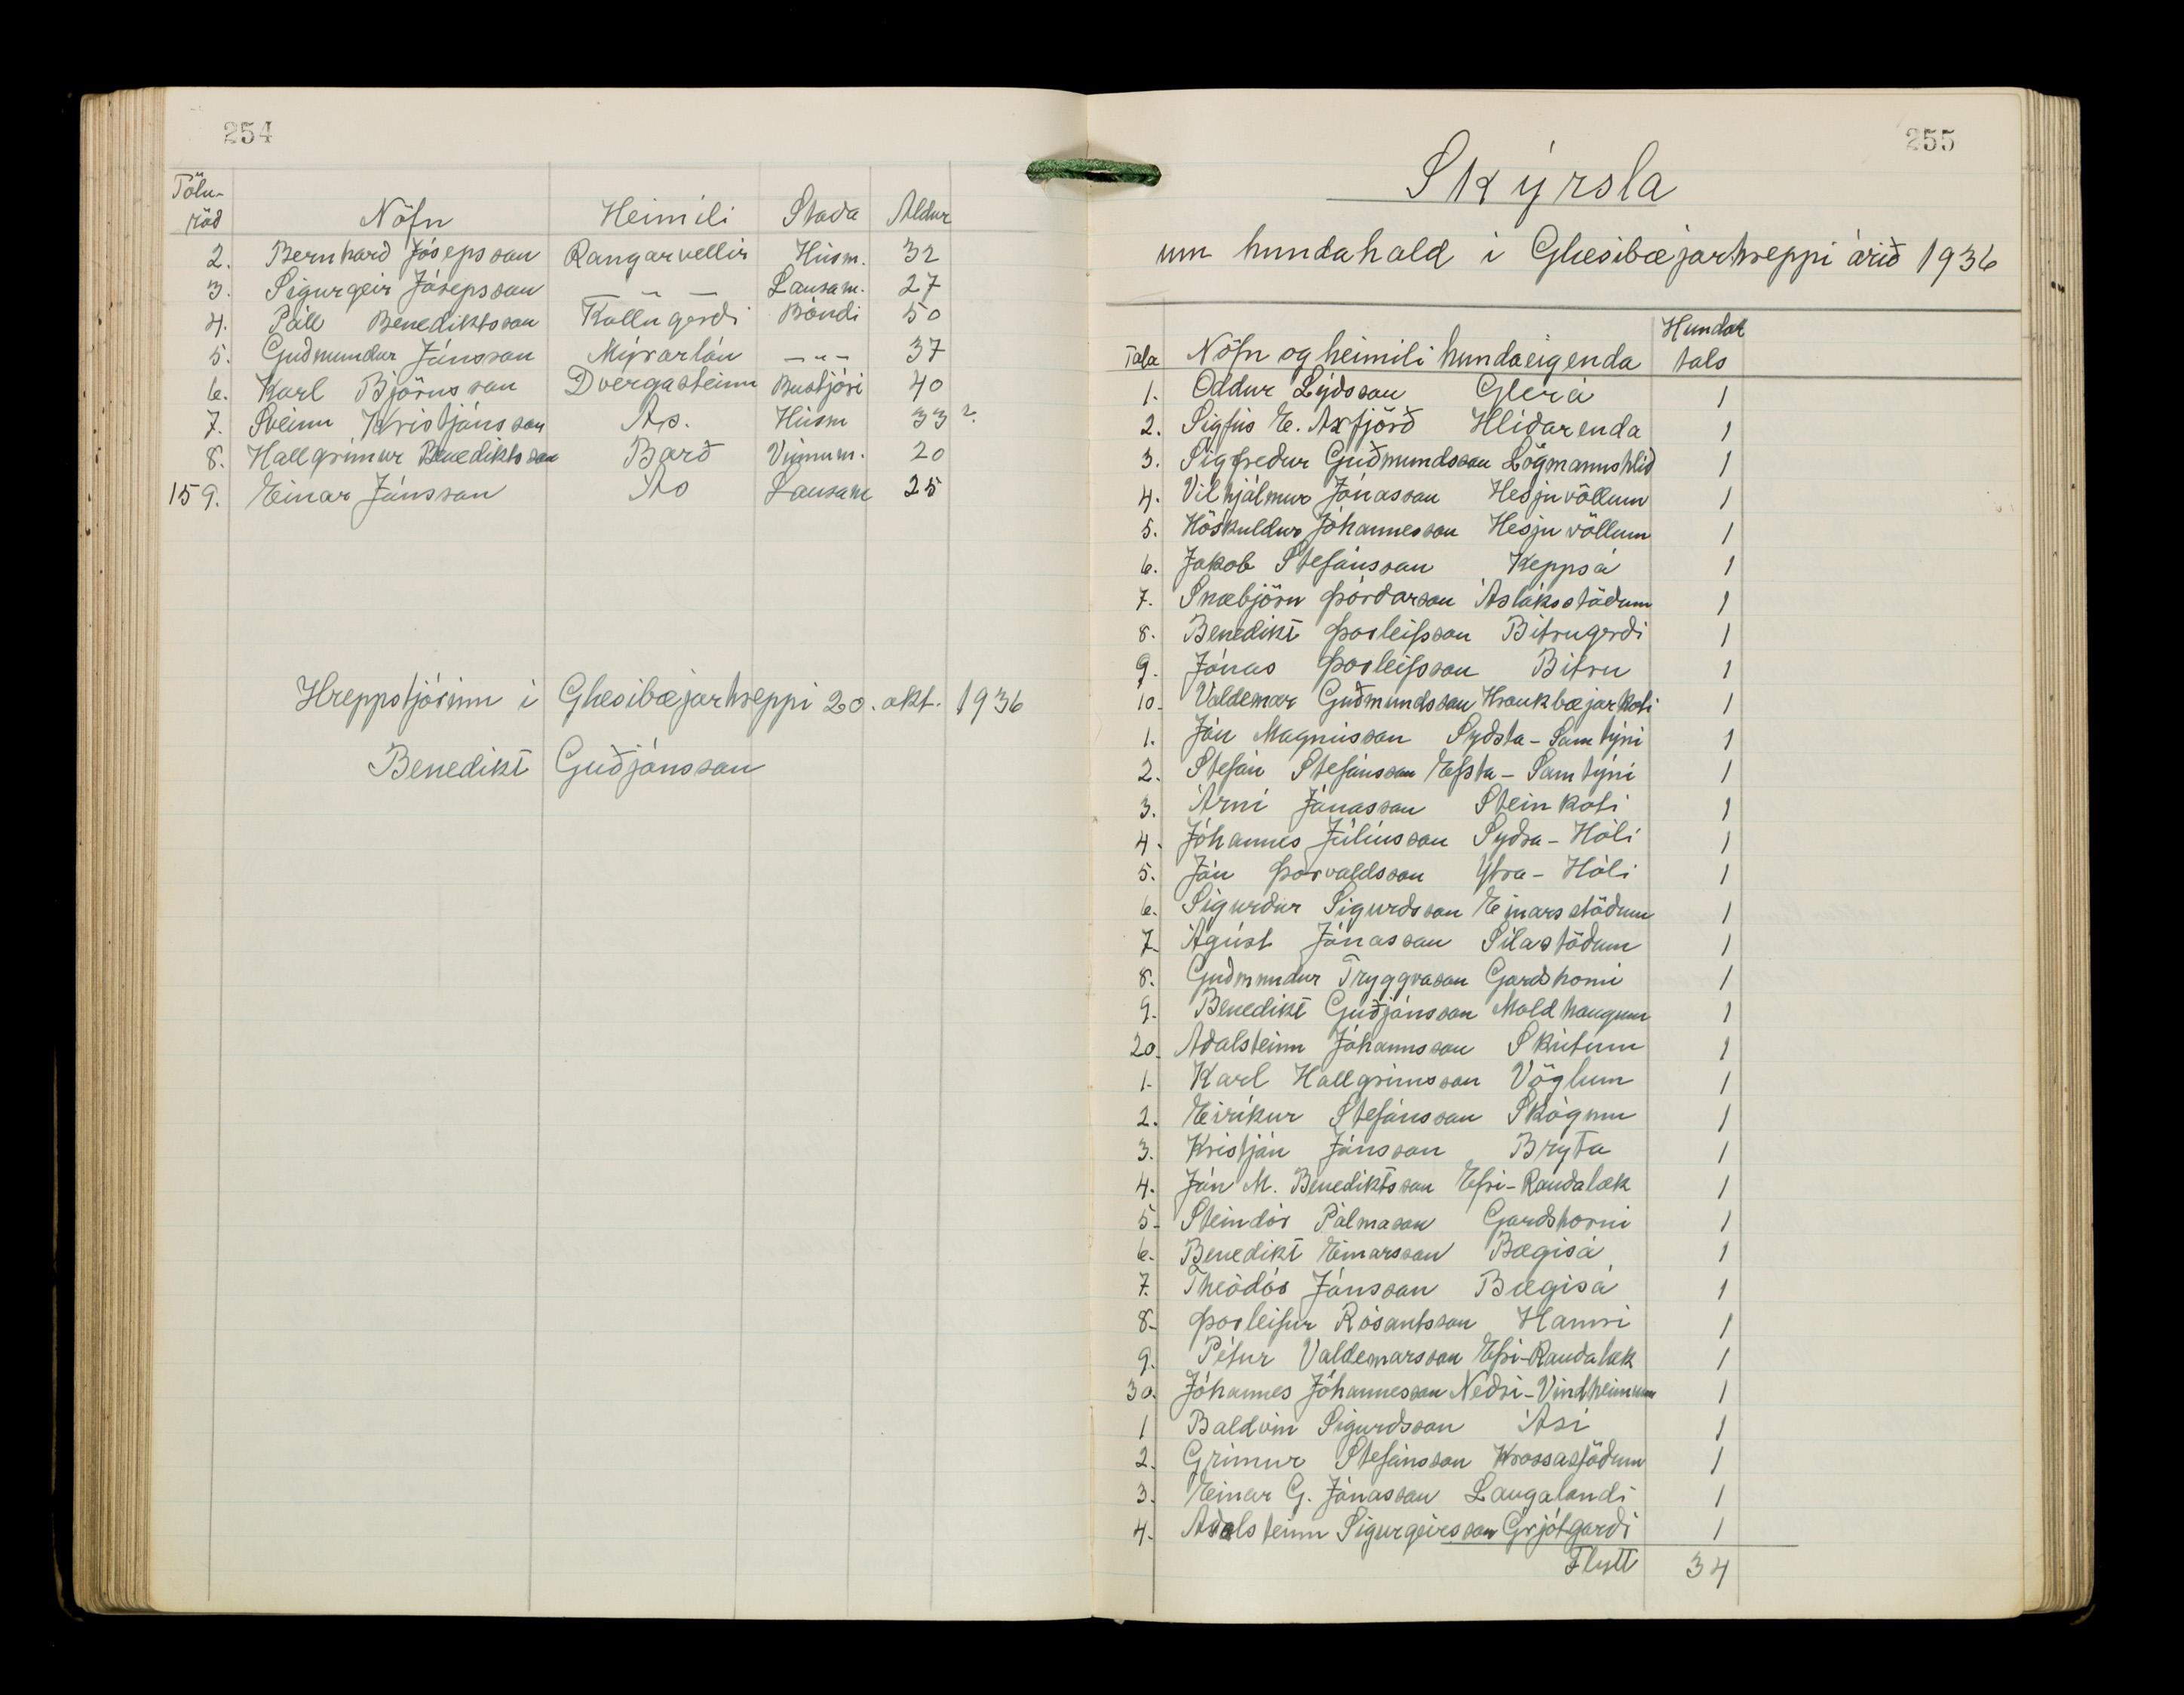 254
Tölu-
röd Nöfn Heimili Stada Aldur
2. Bernhard Jósepsson Rangarvellir Húsm. 32
3. Sigurgeir Jósepsson — " — Lausam. 27
4. Páll Benediktsson Kollugerdi Bóndi 50
5. Gudmundur Jónsson Mýrarlón — " — 37
6. Karl Björnsson Dvergasteinn Bústjóri 40
7. Steinn Kristjánsson Ás. Húsm 33?
8. Hallgrímur Benediktsson Barð Vinnum. 20
159. Einar Jónsson Ás Lausam 25
Hreppstjórinn i Glæsibæjarhreppi 20. okt. 1936
Benedikt Guðjónsson
255
Skýrsla
um hundahald i Glæsibæjarhreppi árið 1936
Tala Nöfn og heimili hundaeigenda Hundar tals
1. Oddur Lýdsson Glerá 1
2. Sigfús E. Axfjörð Hlídarenda 1
3. Sigfredur Guðmundsson Lögmannshlid 1
4. Vilhjálmur Jónasson Hesjuvöllum 1
5. Höskuldur Jóhannesson Hesjuvöllum 1
6. Jakob Stefánsson Keppsá 1
7. Snæbjörn Þórdarson Ásláksstödum 1
8. Benedikt Þorleifsson Bitrugerdi 1
9. Jónas Þorleifsson Bitru 1
10. Valdemar Guðmundsson Kraukbæjarkoti 1
1. Jón Magnússon Sydsta-Samtýni 1
2. Stefán Stefánsson Efsta-Samtýni 1
3. Árni Jónasson Steinkoti 1
4. Jóhannes Júlíusson Sydra-Hóli 1
5. Jón Þorvaldsson Ytra-Hóli 1
6. Sigurdur Sigurdsson Einarsstödum 1
7. Ágúst Jónasson Sílastödum 1
8. Gudmundur Tryggvason Gardshorni 1
9. Benedikt Guðjónsson Moldhaugum 1
20. Adalsteinn Jóhannsson Skútum 1
1. Karl Hallgrímsson Vöglum 1
2. Eiríkur Stefánsson Skógum 1
3. Kristján Jónsson Bryta 1
4. Jón M. Benediktsson Efri-Raudalæk 1
5. Steindór Pálmason Gardshorni 1
6. Benedikt Einarsson Bægisá 1
7. Theódór Jónsson Bægisá 1
8. Þorleifur Rósantsson Hamri 1
9. Pétur Valdemarsson Efri-Raudalæk 1
30. Jóhannes Jóhannesson Nedri-Vindheimum 1
1 Baldvin Sigurdsson Ási 1
2. Grímur Stefánsson Krossastödum 1
3. Einar G. Jónasson Laugalandi 1
4. Adalsteinn Sigurgeirsson Grjótgardi 1
Flutt 34